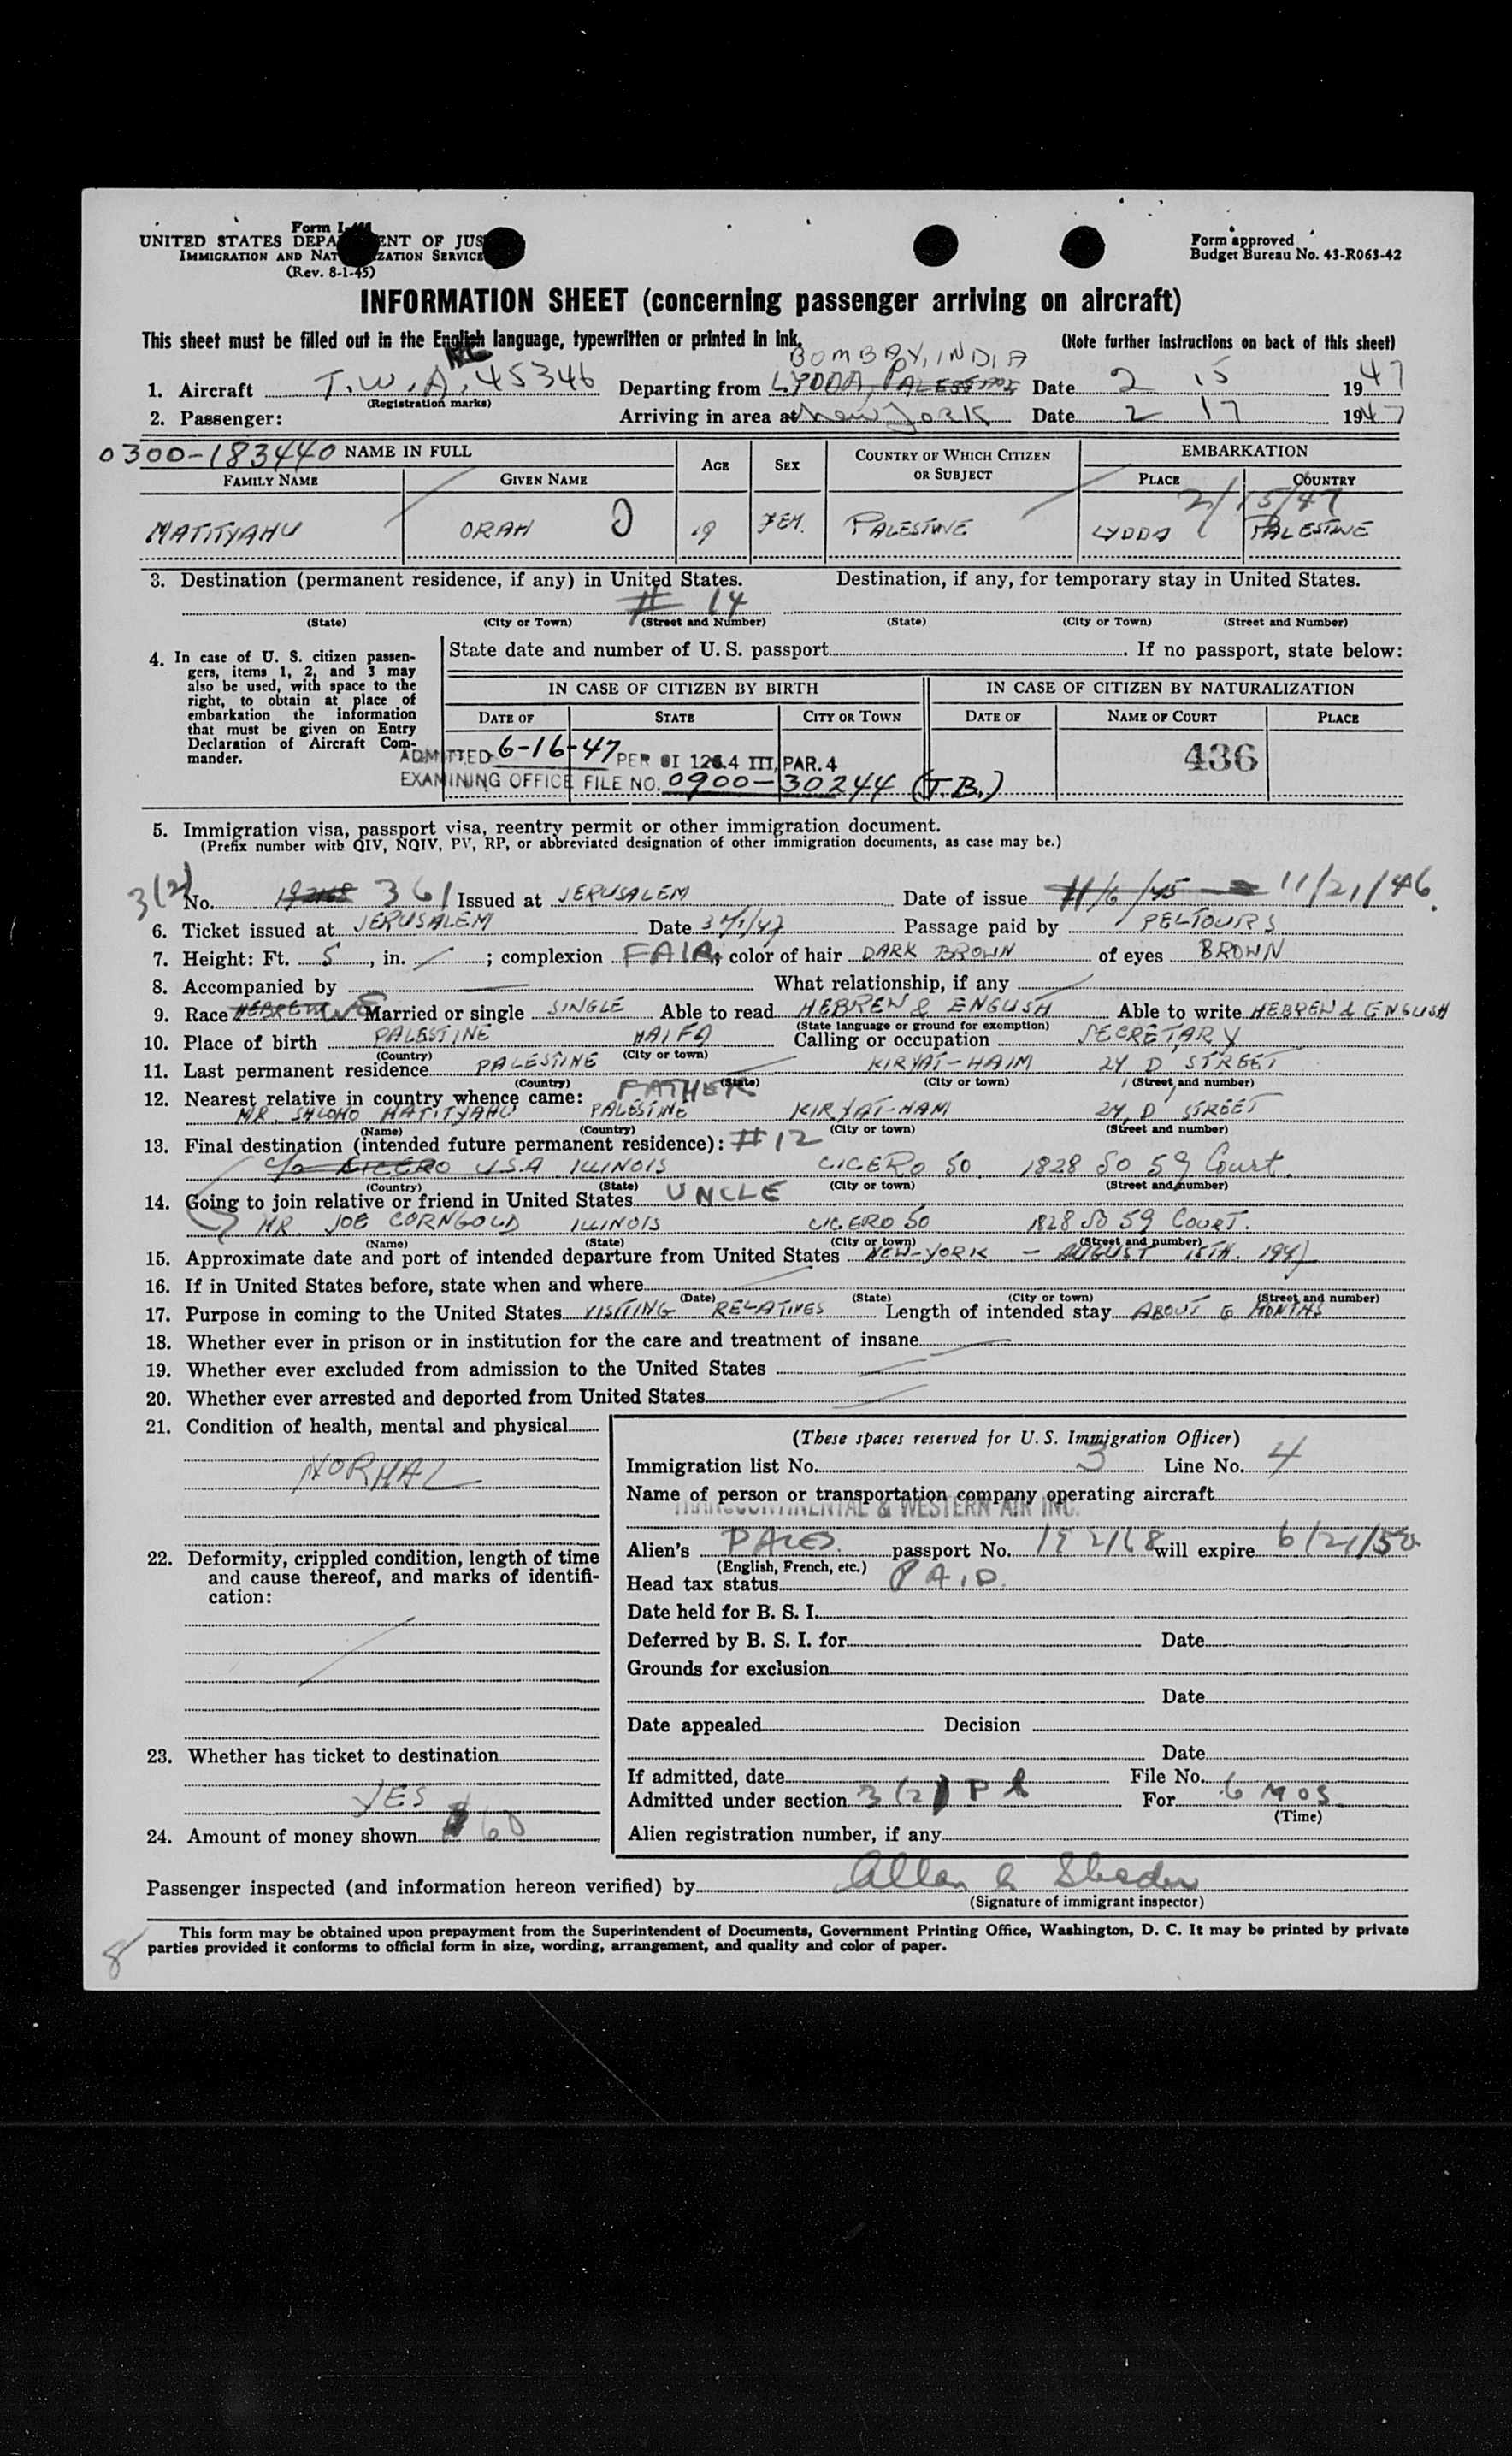 Form I-
UNITED STATES DEPA ENT OF JUS
IMMIGRATION AND NAT ZATION SERVICE
(Rev. 8-1-45)
Form approved
Budget Bureau No. 43-R063-42
INFORMATION SHEET (concerning passenger arriving on aircraft)
This sheet must be filled out in the English language, typewritten or printed in ink. (Note further instructions on back of this sheet)
BOMBAY, INDIA
1. Aircraft T.W.A. 45346 Departing from LYDDA, PALESTINE Date 2 15 1947
(Registration marks)
2. Passenger: Arriving in area at New York Date 2 17 1947
0300-183440 NAME IN FULL AGE SEX COUNTRY OF WHICH CITIZEN OR SUBJECT EMBARKATION
FAMILY NAME GIVEN NAME PLACE COUNTRY
2/15/47
MATITYAHU ORAH 19 FEM. PALESTINE LYDDA PALESTINE
3. Destination (permanent residence, if any) in United States. Destination, if any, for temporary stay in United States.
# 14
(State) (City or Town) (Street and Number) (State) (City or Town) (Street and Number)
4. In case of U. S. citizen passengers, items 1, 2, and 3 may also be used, with space to the right, to obtain at place of embarkation the information that must be given on Entry Declaration of Aircraft Commander.
State date and number of U. S. passport. If no passport, state below:
IN CASE OF CITIZEN BY BIRTH IN CASE OF CITIZEN BY NATURALIZATION
DATE OF STATE CITY OR TOWN DATE OF NAME OF COURT PLACE
ADMITTED 6-16-47 PER OI 126.4 III, PAR. 4 436
EXAMINING OFFICE FILE NO. 0900-30244 (T.B.)
5. Immigration visa, passport visa, reentry permit or other immigration document.
(Prefix number with QIV, NQIV, PV, RP, or abbreviated designation of other immigration documents, as case may be.)
3(2) No. 361 Issued at JERUSALEM Date of issue 11/6/45 11/21/46.
6. Ticket issued at JERUSALEM Date Passage paid by PELTOURS
7. Height: Ft. 5, in. ; complexion FAIR; color of hair DARK BROWN of eyes BROWN
8. Accompanied by What relationship, if any
9. Race HEBREW Married or single SINGLE Able to read HEBREW & ENGLISH Able to write HEBREW & ENGLISH
(State language or ground for exemption)
10. Place of birth PALESTINE HAIFA Calling or occupation SECRETARY
(Country) (City or town)
11. Last permanent residence PALESTINE KIRYAT-HAIM 24 D STREET
(Country) (State) (City or town) (Street and number)
12. Nearest relative in country whence came: FATHER
MR. SHLOMO MATITYAHU PALESTINE KIRYAT-HAIM 24, D STREET
(Name) (Country) (City or town) (Street and number)
13. Final destination (intended future permanent residence): # 12
c/o CICERO U.S.A ILLINOIS CICERO 50 1828 So 59 Court.
(Country) (State) (City or town) (Street and number)
14. Going to join relative or friend in United States UNCLE
MR. JOE CORNGOLD ILLINOIS CICERO 50 1828 SO 59 COURT.
(Name) (State) (City or town) (Street and number)
15. Approximate date and port of intended departure from United States NEW-YORK - AUGUST 15TH. 1947
16. If in United States before, state when and where
(Date) (State) (City or town) (Street and number)
17. Purpose in coming to the United States VISITING RELATIVES Length of intended stay ABOUT 6 MONTHS
18. Whether ever in prison or in institution for the care and treatment of insane
19. Whether ever excluded from admission to the United States
20. Whether ever arrested and deported from United States
21. Condition of health, mental and physical
NORMAL
22. Deformity, crippled condition, length of time and cause thereof, and marks of identification:
23. Whether has ticket to destination
YES
24. Amount of money shown 60
(These spaces reserved for U. S. Immigration Officer)
Immigration list No. 3 Line No. 4
Name of person or transportation company operating aircraft
TRANSCONTINENTAL & WESTERN AIR INC.
Alien's PALES. passport No. 192168 will expire 6/21/50
(English, French, etc.)
Head tax status PAID.
Date held for B. S. I.
Deferred by B. S. I. for Date
Grounds for exclusion
Date
Date appealed Decision
Date
If admitted, date File No.
Admitted under section 3(2) For 6 MOS.
(Time)
Alien registration number, if any
Passenger inspected (and information hereon verified) by
(Signature of immigrant inspector)
This form may be obtained upon prepayment from the Superintendent of Documents, Government Printing Office, Washington, D. C. It may be printed by private
parties provided it conforms to official form in size, wording, arrangement, and quality and color of paper.
8